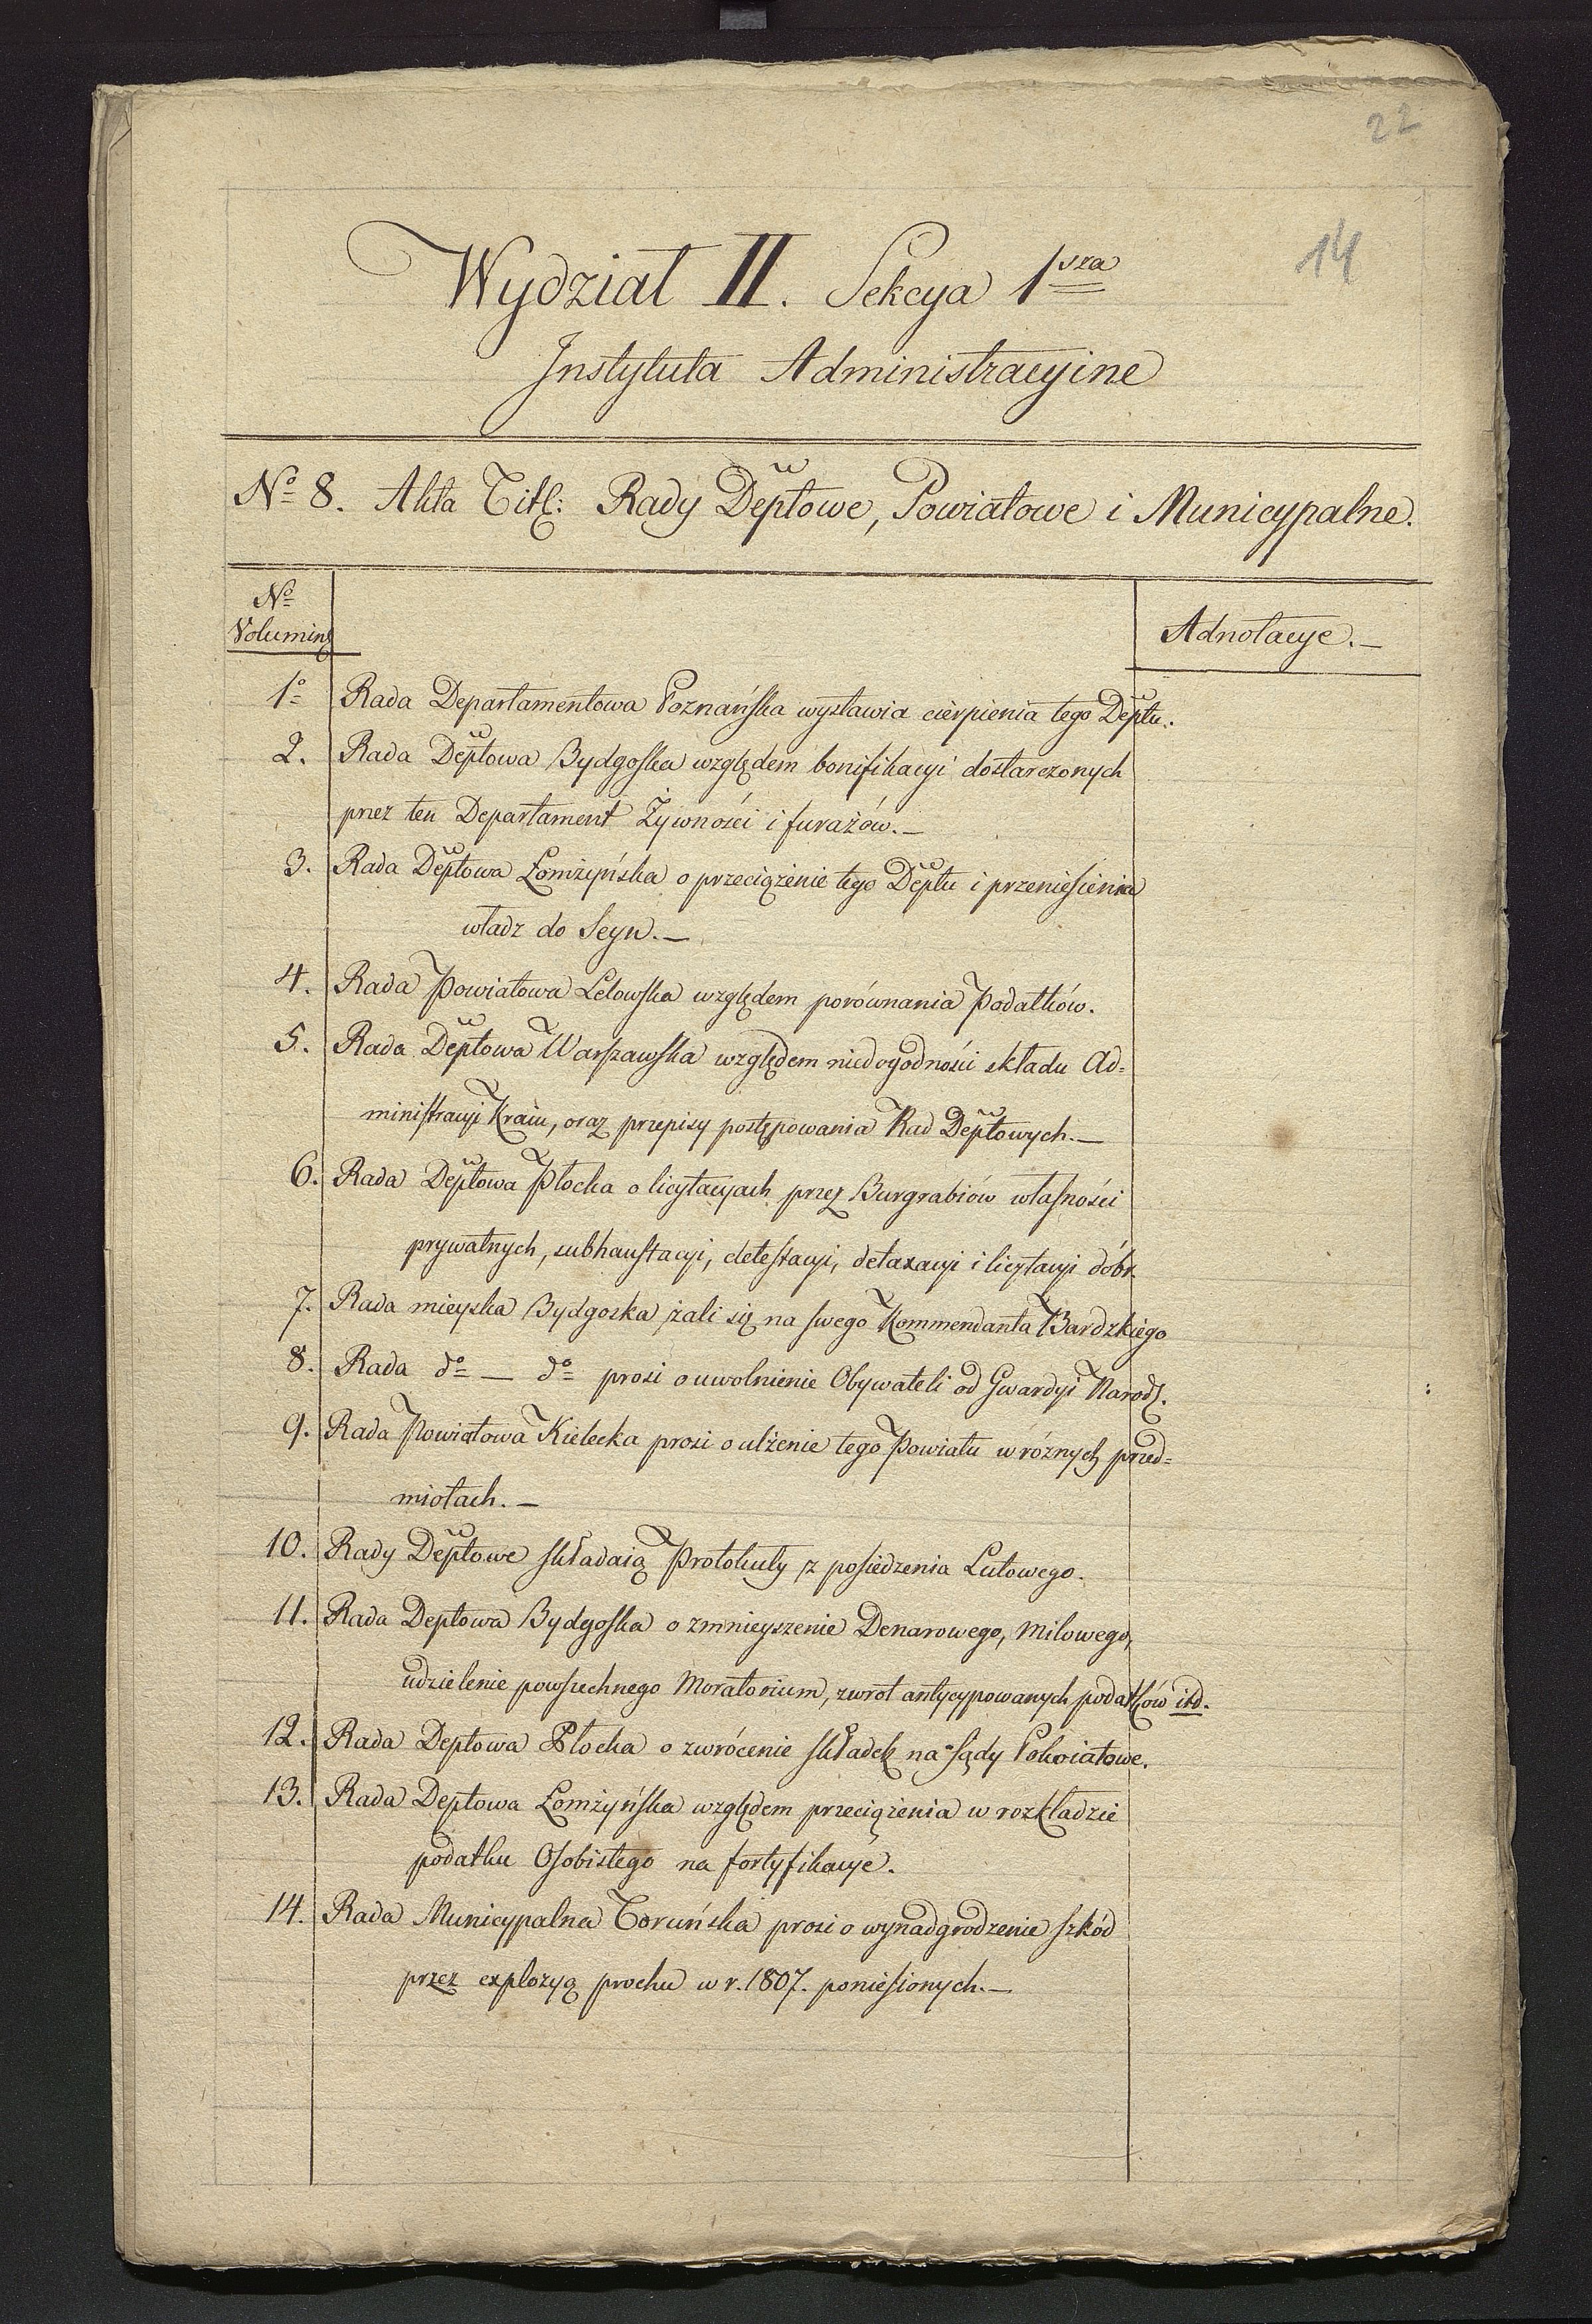 22
14
Wydział II. Sekcya 1sza
Instytuta Administracyine
No 8. Akta Titl: Rady Deptowe, Powiatowe i Municypalne.
No
Voluming
Adnotacye.—
1o Rada Departamentowa Poznańska wystawia cierpienia tego Deptu.
2. Rada Deptowa Bydgoska względem bonifikacyi dostarczonych
przez ten Departament Żywności i furażów.—
3. Rada Deptowa Łomżyńska o przeciążenie tego Deptu i przeniesienia
władz do Seyn.—
4. Rada Powiatowa Lelowska względem porównania Podatków.
5. Rada Deptowa Warszawska względem niedogodności składu Ad=
ministracyi Kraiu, oraz przepisy postępowania Rad Deptowych.—
6. Rada Deptowa Płocka o licytacyach przez Burgrabiów własności
prywatnych, subhaustacyi, detestacyi, detaxacyi i licytacyi dóbr
7. Rada mieyska Bydgoska żali się na swego Kommendanta Bardzkiego
8. Rada do — do prosi o uwolnienie Obywateli od Gwardyi Narod.
9. Rada Powiatowa Kielecka prosi o ulżenie tego Powiatu w różnych przed=
miotach.—
10. Rady Deptowe składaią Protokuły z posiedzenia Lutowego.
11. Rada Deptowa Bydgoska o zmnieyszenie Denarowego, Milowego,
udzielenie powszechnego Moratorium, zwrot antycypowanych podatków itd.
12. Rada Deptowa Płocka o zwrócenie składek na Sądy Powiatowe.
13. Rada Deptowa Łomżyńska względem przeciążenia w rozkładzie
podatku Osobistego na fortyfikacye.
14. Rada Municypalna Toruńska prosi o wynadgrodzenie szkód
przez explozyą prochu w r. 1807. poniesionych.—